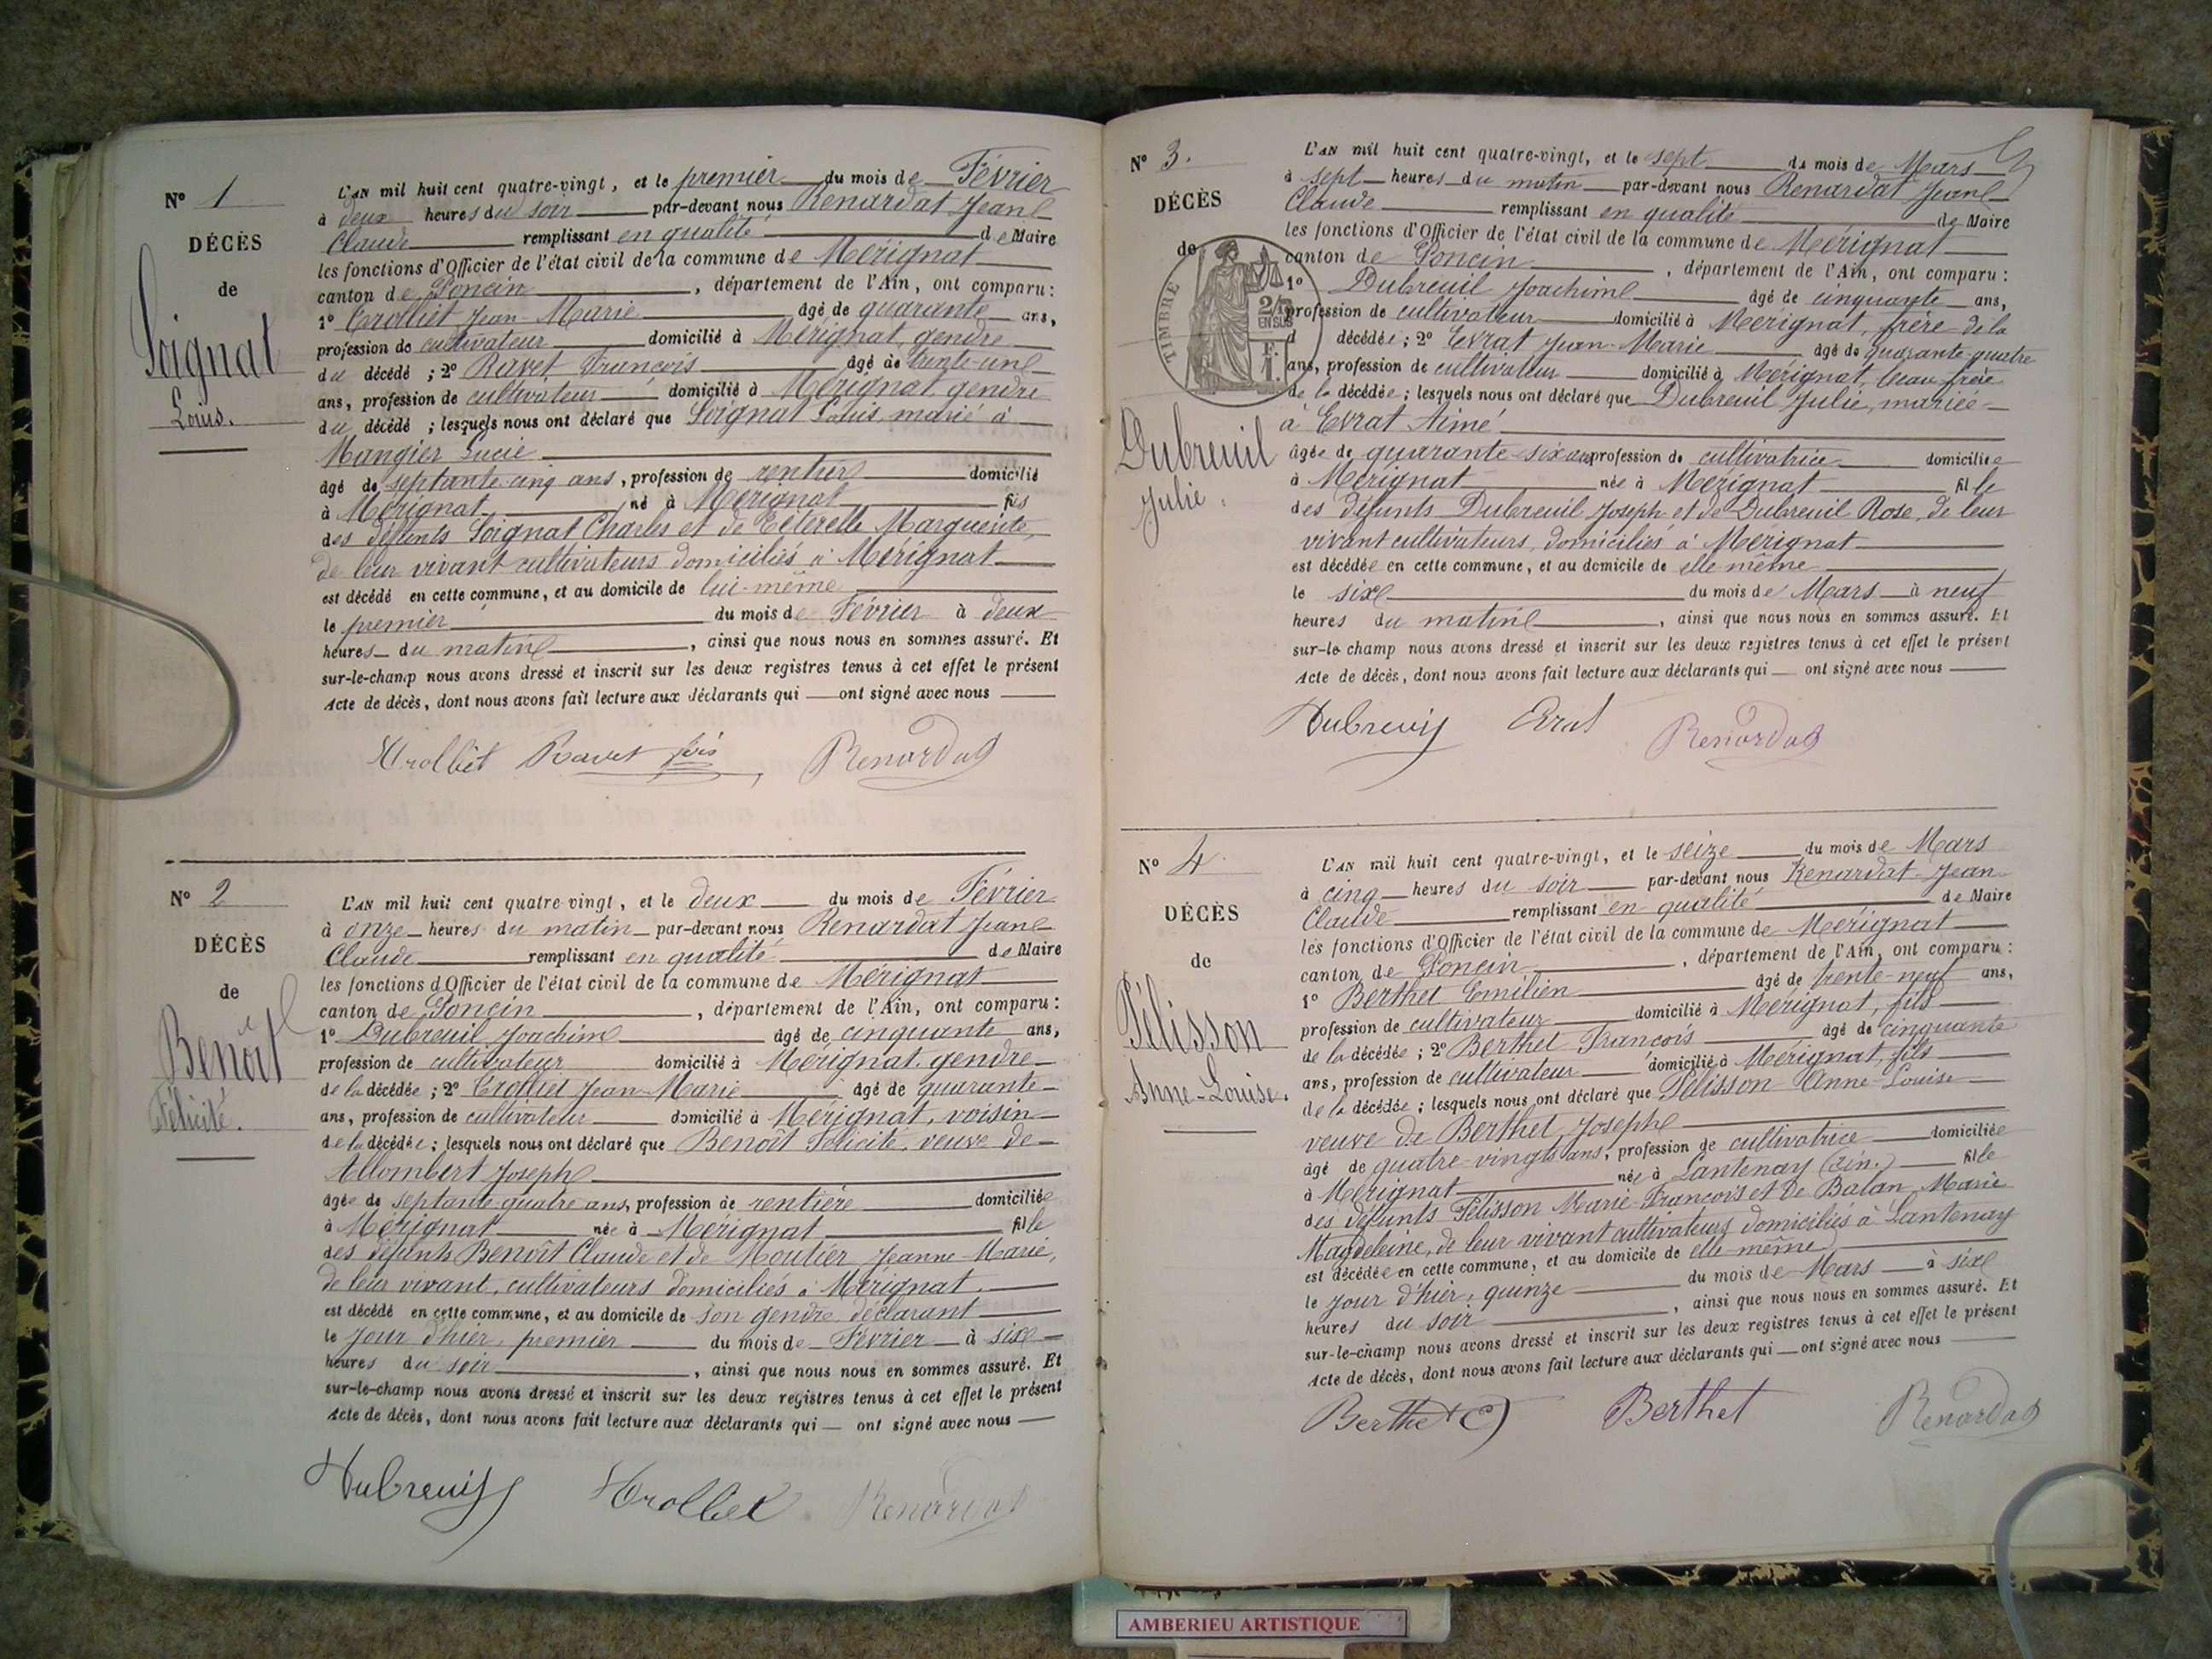 N° 1
DÉCÈS
de
Soignat
Louis.
L'AN mil huit cent quatre-vingt, et le premier du mois de Février
à deux heures du soir par-devant nous Renardat Jean
Claude remplissant en qualité de Maire
les fonctions d'Officier de l'état civil de la commune de Mérignat
canton de Poncin, département de l'Ain, ont comparu :
1° Crollict Jean-Marie âgé de quarante ans,
profession de cultivateur domicilié à Mérignat, gendre
du décédé ; 2° Ravet François âgé de trente-un
ans, profession de cultivateur domicilié à Mérignat, gendre
du décédé ; lesquels nous ont déclaré que Soignat Louis, marié à
Mangier Lucie
âgé de septante-cinq ans, profession de rentier domicilié
à Mérignat né à Mérignat fils
des défunts Soignat Charles et de Marguerite,
de leur vivant cultivateurs domiciliés à Mérignat
est décédé en cette commune, et au domicile de lui-même
le premier du mois de Février à deux
heures du matin, ainsi que nous nous en sommes assuré. Et
sur-le-champ nous avons dressé et inscrit sur les deux registres tenus à cet effet le présent
Acte de décès, dont nous avons fait lecture aux déclarants qui ont signé avec nous
Crolliet Ravet fçois Renardat
N° 2
DÉCÈS
de
Benoît
Félicité.
L'AN mil huit cent quatre-vingt, et le deux du mois de Février
à onze heures du matin par-devant nous Renardat Jean
Claude remplissant en qualité de Maire
les fonctions d'Officier de l'état civil de la commune de Mérignat
canton de Poncin, département de l'Ain, ont comparu :
1° Dubreuil Joachim âgé de cinquante ans,
profession de cultivateur domicilié à Mérignat, gendre
de la décédée ; 2° Crolliet Jean-Marie âgé de quarante
ans, profession de cultivateur domicilié à Mérignat, voisin
de la décédée ; lesquels nous ont déclaré que Benoît Félicité, veuve de
Allombert Joseph
âgée de septante-quatre ans, profession de rentière domiciliée
à Mérignat née à Mérignat fille
des défunts Benoît Claude et de Moutier Jeanne-Marie,
de leur vivant, cultivateurs domiciliés à Mérignat,
est décédé en cette commune, et au domicile de son gendre, déclarant
le jour d'hier, premier du mois de Février à six
heures du soir, ainsi que nous nous en sommes assuré. Et
sur-le-champ nous avons dressé et inscrit sur les deux registres tenus à cet effet le présent
Acte de décès, dont nous avons fait lecture aux déclarants qui ont signé avec nous
Dubreuil Crolliet Renardat
N° 3.
DÉCÈS
de
TIMBRE
2/10
EN SUS
Dubreuil
Julie.
L'AN mil huit cent quatre-vingt, et le sept du mois de Mars
à sept heures du matin par-devant nous Renardat Jean
Claude remplissant en qualité de Maire
les fonctions d'Officier de l'état civil de la commune de Mérignat
canton de Poncin, département de l'Ain, ont comparu :
1° Dubreuil Joachim âgé de cinquante ans,
profession de cultivateur domicilié à Mérignat, frère de la
d décédée ; 2° Evrat Jean-Marie âgé de quarante-quatre
ans, profession de cultivateur domicilié à Mérignat, beau frère
de la décédée ; lesquels nous ont déclaré que Dubreuil Julie, mariée
à Evrat Aimé
âgée de quarante-six ans profession de cultivatrice domiciliée
à Mérignat née à Mérignat fille
des défunts Dubreuil Joseph et de Dubreuil Rose, de leur
vivant cultivateurs, domiciliés à Mérignat
est décédée en cette commune, et au domicile de elle même
le six du mois de Mars à neuf
heures du matin, ainsi que nous nous en sommes assuré. Et
sur-le-champ nous avons dressé et inscrit sur les deux registres tenus à cet effet le présent
Acte de décès, dont nous avons fait lecture aux déclarants qui ont signé avec nous
Dubreuil Evrat Renardat
N° 4
DÉCÈS
de
Pélisson
Anne-Louise.
L'AN mil huit cent quatre-vingt, et le seize du mois de Mars
à cinq heures du soir par-devant nous Renardat Jean
Claude remplissant en qualité de Maire
les fonctions d'Officier de l'état civil de la commune de Mérignat
canton de Poncin, département de l'Ain, ont comparu :
1° Berthet Emilien âgé de trente-neuf ans,
profession de cultivateur domicilié à Mérignat, fils
de la décédée ; 2° Berthet François âgé de cinquante
ans, profession de cultivateur domicilié à Mérignat, fils
de la décédée ; lesquels nous ont déclaré que Pélisson Anne-Louise
veuve de Berthet Joseph
âgé de quatre-vingts ans, profession de cultivatrice domiciliée
à Mérignat née à Lantenay (Ain.) fille
des défunts Pélisson Marie-François et de Balan Marie
Magdeleine, de leur vivant cultivateurs domiciliés à Lantenay
est décédée en cette commune, et au domicile de elle-même
le jour d'hier, quinze du mois de Mars à six
heures du soir, ainsi que nous nous en sommes assuré. Et
sur-le-champ nous avons dressé et inscrit sur les deux registres tenus à cet effet le présent
Acte de décès, dont nous avons fait lecture aux déclarants qui ont signé avec nous
Berthet Berthet Renardat
AMBERIEU ARTISTIQUE